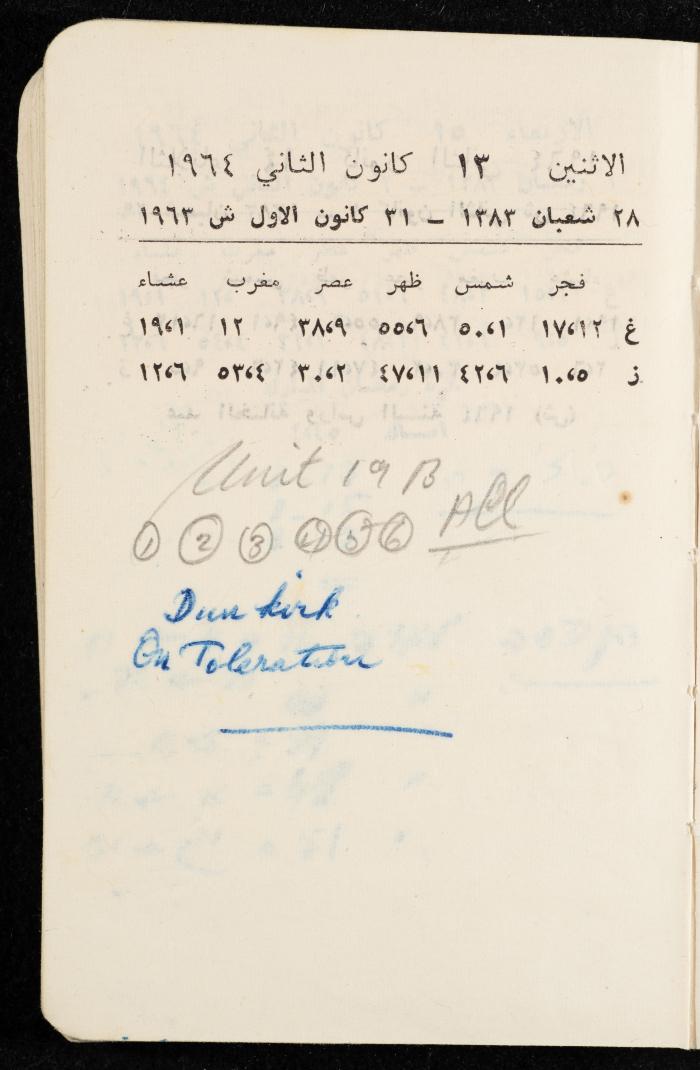 الاثنين ١٣ كانون الثاني ١٩٦٤
٢٨ شعبان ١٣٨٣ – ٣١ كانون الاول ش ١٩٦٣
فجر شمس ظهر عصر مغرب عشاء
غ ١٧،١٢ ٥٠،١ ٥٥،٦ ٣٨،٩ ١٢ ١٩،١
ز ١٠،٥ ٤٢،٦ ٤٧،١١ ٣٠،٢ ٥٣،٤ ١٢،٦
Unit 19 B
① ② ③ ④ ⑤ ⑥ All
Dunkirk
On Toleration